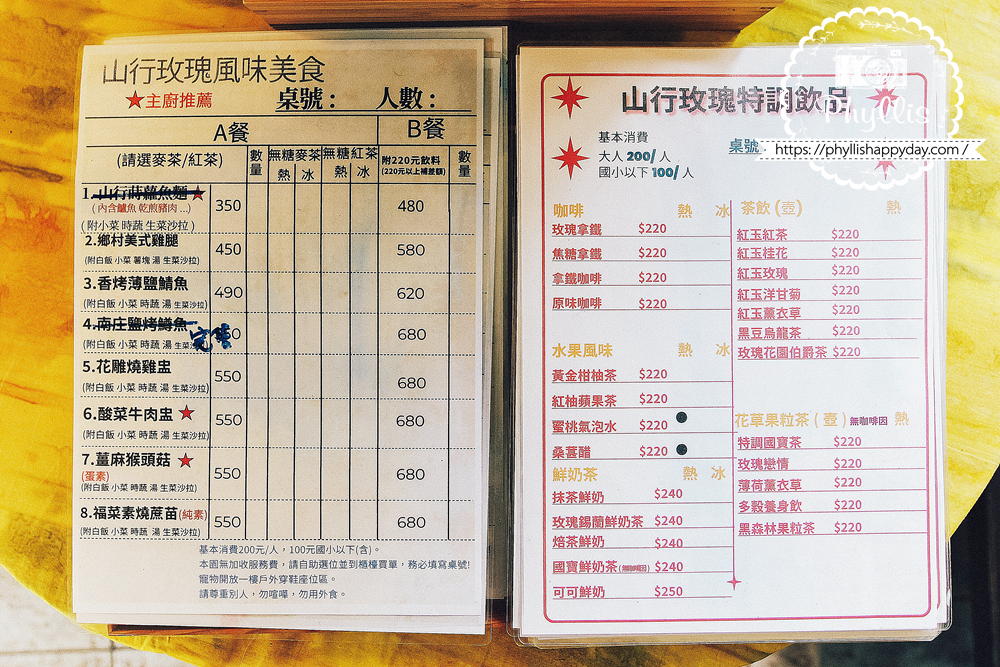 山行玫瑰風味美食
★主廚推薦 桌號： 人數：
A餐 B餐
(請選麥茶/紅茶) 數量 無糖麥茶 熱 冰 無糖紅茶 熱 冰 附220元飲料 (220元以上補差額) 數量
1.山行蒔蘿魚麵★ 350 480
(內含鱸魚 乾煎豬肉...)
(附小菜 時蔬 生菜沙拉)
2.鄉村美式雞腿 450 580
(附白飯 小菜 薯塊 湯 生菜沙拉)
3.香烤薄鹽鯖魚 490 620
(附白飯 小菜 時蔬 湯 生菜沙拉)
4.南庄鹽烤鱒魚 完售 680
(附白飯 小菜 時蔬 湯 生菜
5.花雕燒雞盅 550 680
(附白飯 小菜 時蔬 湯 生菜沙拉)
6.酸菜牛肉盅 ★ 550 680
(附白飯 小菜 時蔬 湯 生菜沙拉)
7.薑麻猴頭菇 ★ 550 680
(蛋素)
(附白飯 小菜 時蔬 湯 生菜沙拉)
8.福菜素燒蔗苗(純素) 550 680
(附白飯 小菜 時蔬 湯 生菜沙拉)
基本消費200元/人，100元國小以下(含)。
本園無加收服務費，請自助選位並到櫃檯買單，務必填寫桌號!
寵物開放一樓戶外穿鞋座位區。
請尊重別人，勿喧嘩，勿用外食。
山行玫瑰特調飲品
基本消費
大人 200/人
國小以下 100/人
桌號
咖啡 熱 冰
玫瑰拿鐵 $220
焦糖拿鐵 $220
拿鐵咖啡 $220
原味咖啡 $220
水果風味 熱 冰
黃金柑柚茶 $220
紅柚蘋果茶 $220
蜜桃氣泡水 $220 ●
桑葚醋 $220 ●
鮮奶茶 熱 冰
抹茶鮮奶 $240
玫瑰錫蘭鮮奶茶 $240
焙茶鮮奶 $240
國寶鮮奶茶(無咖啡因) $240
可可鮮奶 $250
茶飲 (壺) 熱
紅玉紅茶 $220
紅玉桂花 $220
紅玉玫瑰 $220
紅玉洋甘菊 $220
紅玉薰衣草 $220
黑豆烏龍茶 $220
玫瑰花園伯爵茶 $220
花草果粒茶 (壺) 無咖啡因 熱
特調國寶茶 $220
玫瑰戀情 $220
薄荷薰衣草 $220
多穀養身飲 $220
黑森林果粒茶 $220
Phyllis
https://phyllishappyday.com/